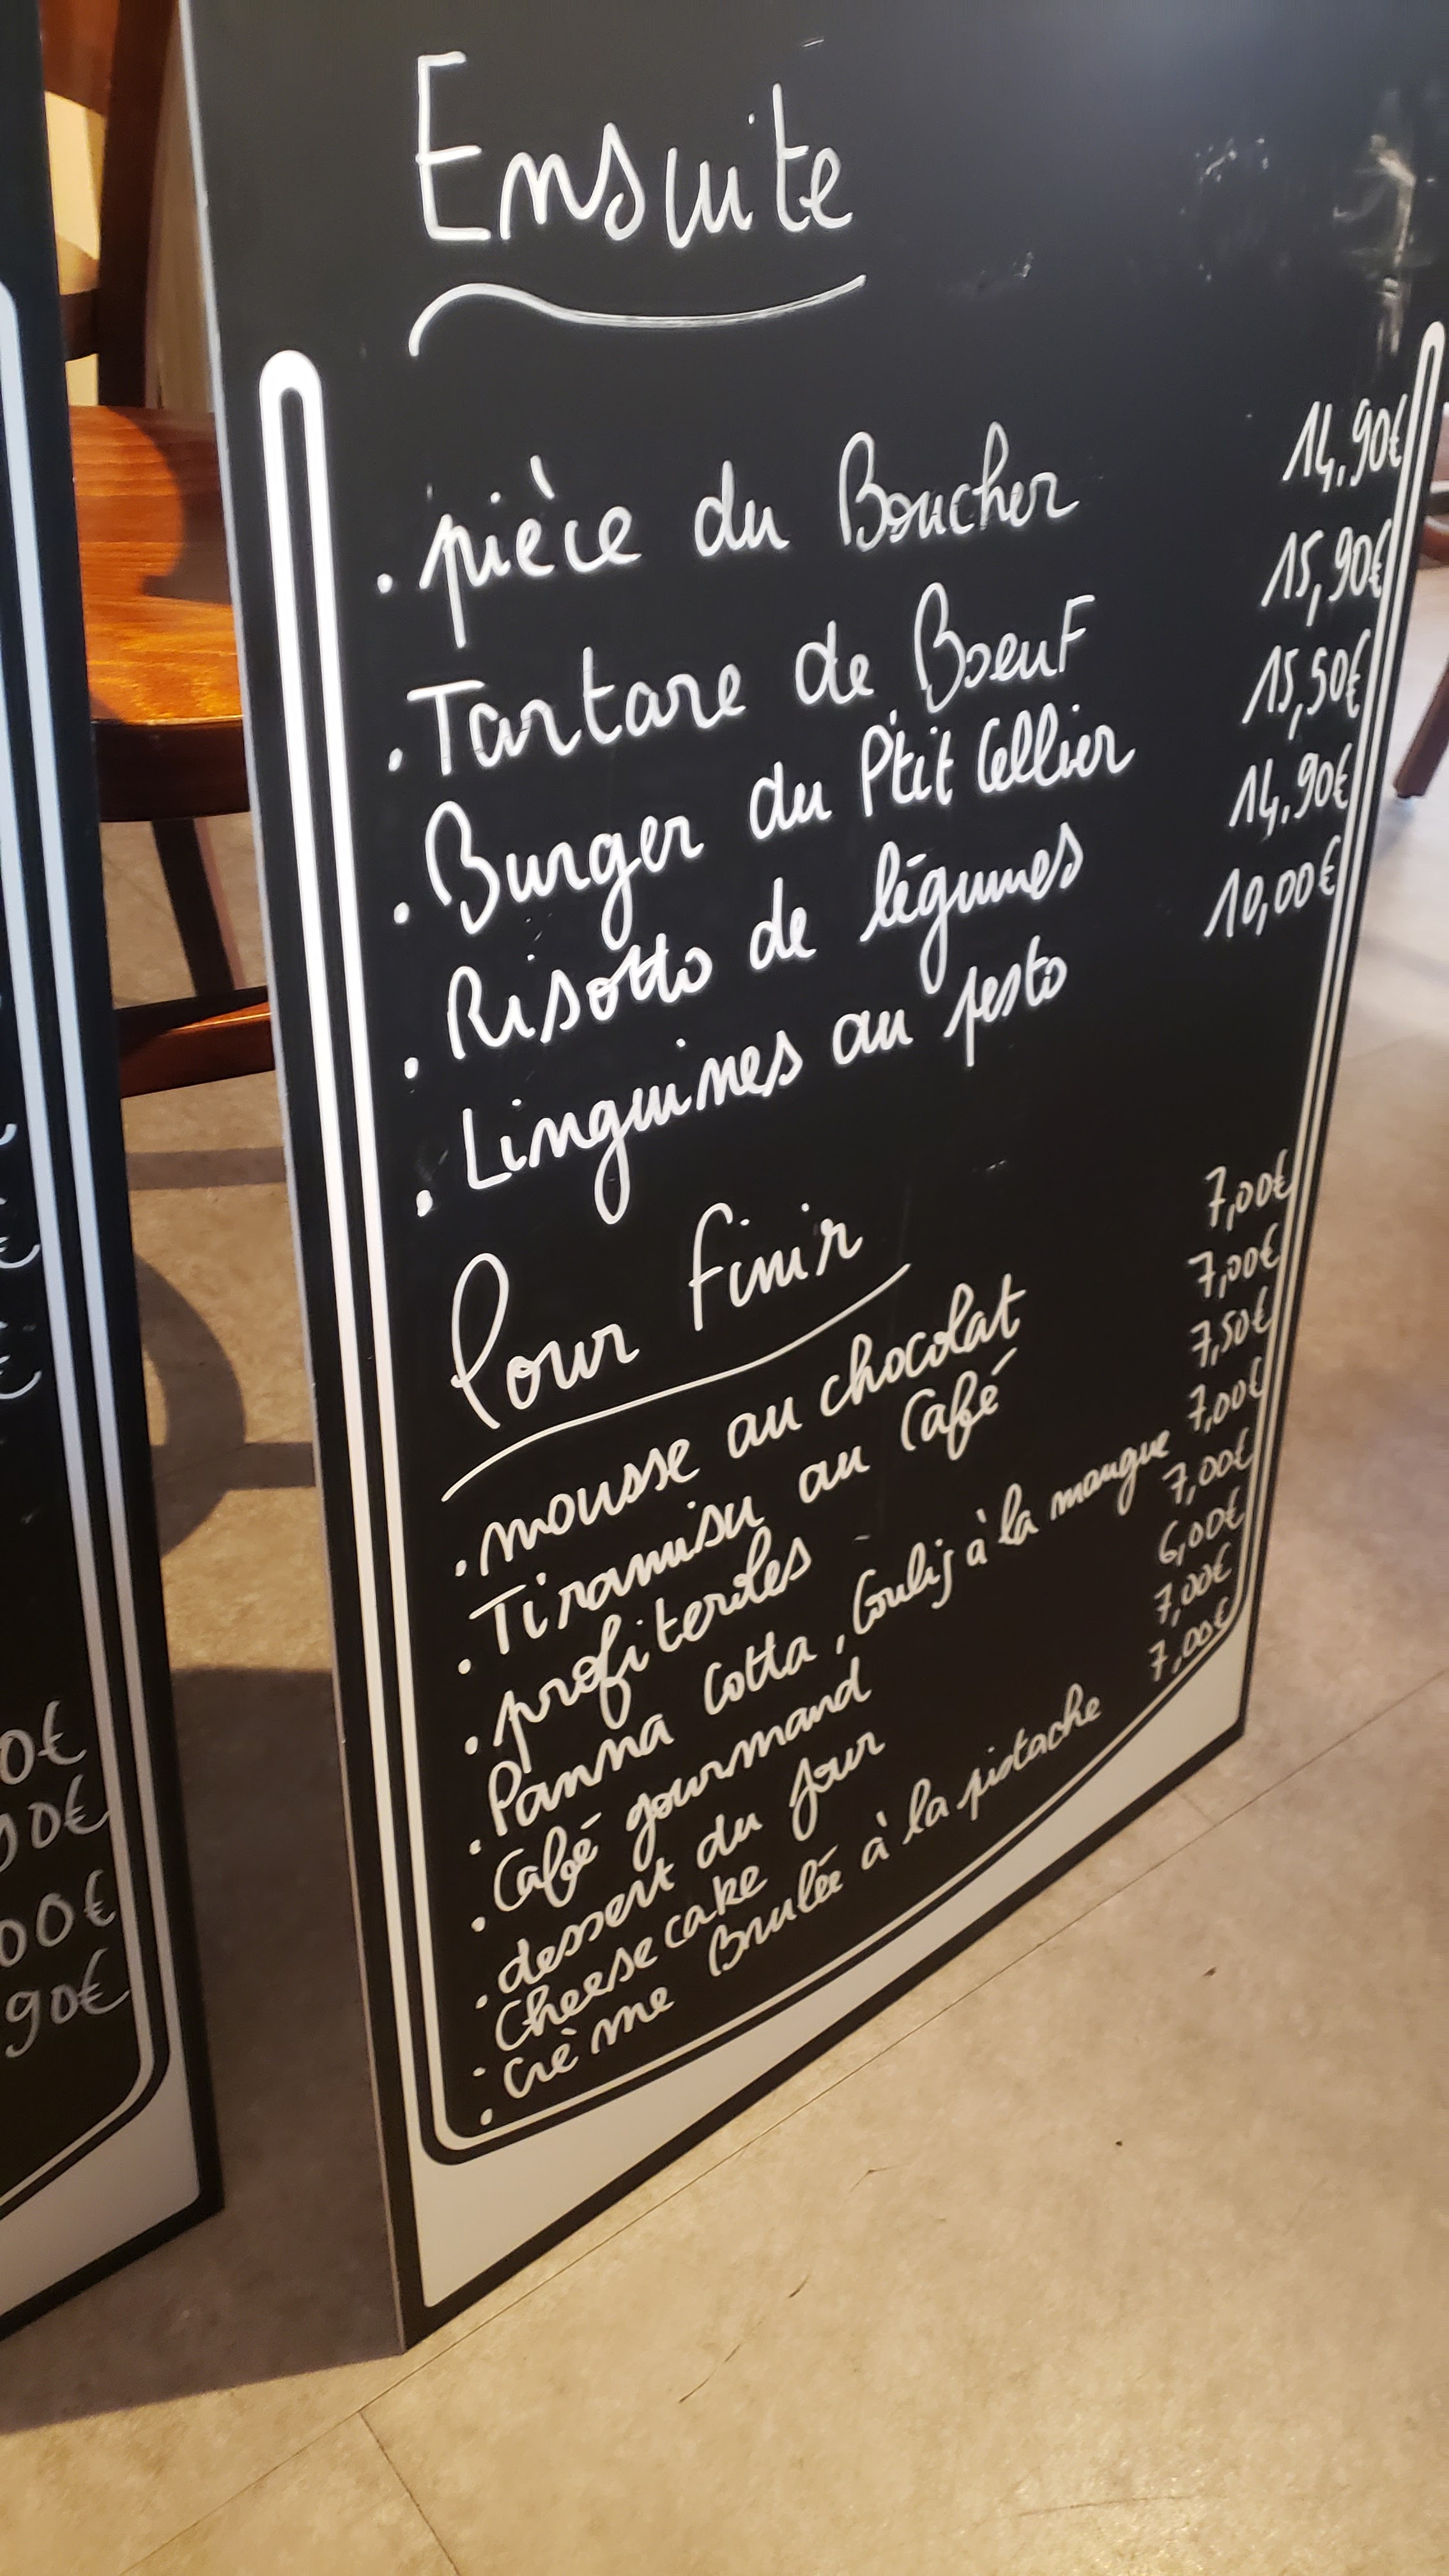 Ensuite
. pièce du Boucher 14,90€
. Tartare de BoeuF 15,90€
. Burger du P'tit Cellier 15,50€
. Risotto de légumes 14,90€
. Linguines au pesto 10,00€
Pour Finir
. mousse au chocolat 7,00€
. Tiramisu au Café 7,00€
. profiteroles 7,50€
. Panna Cotta, Coulis à la mangue 7,00€
. Café gourmand 7,00€
. dessert du jour 6,00€
. Cheese cake 7,00€
. Crème Brulée à la pistache 7,00€
0€
00€
00€
90€